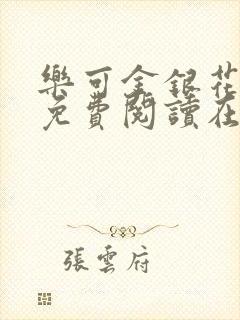 樂可金銀花
免費閱讀在
張雲府